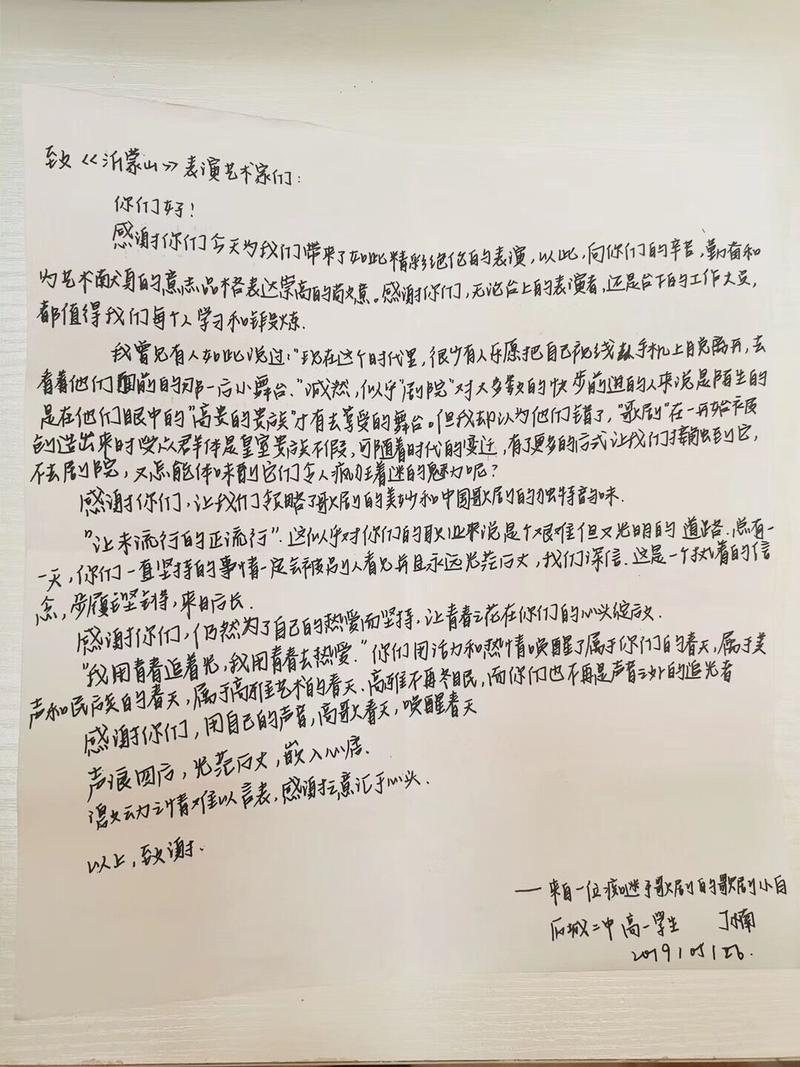 致《沂蒙山》表演艺术家们:
你们好!
感谢你们今天为我们带来了如此精彩绝伦的表演,以此,向你们的辛苦,勤奋和
为艺术献身的意志品格表达崇高的敬意。感谢你们,无论台上的表演者,还是台下的工作人员,
都值得我们每个人学习和锻炼.
我曾见有人如此说过:"现在这个时代里,很少有人乐愿把自己视线从手机上目光离开,去
看着他们面前的那一后小舞台."诚然,似乎"剧院"对大多数的快步前进的人来说是陌生的
是在他们眼中的"高贵的贵族"才有去享受的舞台。但我却认为他们错了,"歌剧"在一开始被
创造出来时受众群体是皇室贵族不假,可随着时代的变迁,有了更多的方式让我们接触到它,
不去剧院,又怎能体味到它们令人疯狂着迷的魅力呢?
感谢你们,让我们领略了歌剧的美妙和中国歌剧的独特韵味.
"让未流行的正流行".这似乎对你们的职业来说是个艰难但又光明的道路.总有
一天,你们一直坚持的事情一定会被别人看见并且永远光芒万丈,我们深信.这是一个执着的信
念,步履坚持,来日方长.
感谢你们,仍然为了自己的热爱而坚持,让青春之花在你们的心头绽放.
"我用青春追着光,我用青春去热爱."你们用活力和热情唤醒了属于你们的春天,属于美
声和民族的春天,属于高雅艺术的春天.高雅不再冬眠,而你们也不再是声音之外的追光者
感谢你们,用自己的声音,高歌春天,唤醒春天
声浪四后,光芒万丈,嵌入心底.
激动之情难以言表,感谢之意汇于心头.
以上,致谢.
——来自一位痴迷于歌剧的歌剧小白
二中高一学生 丁楠
2019